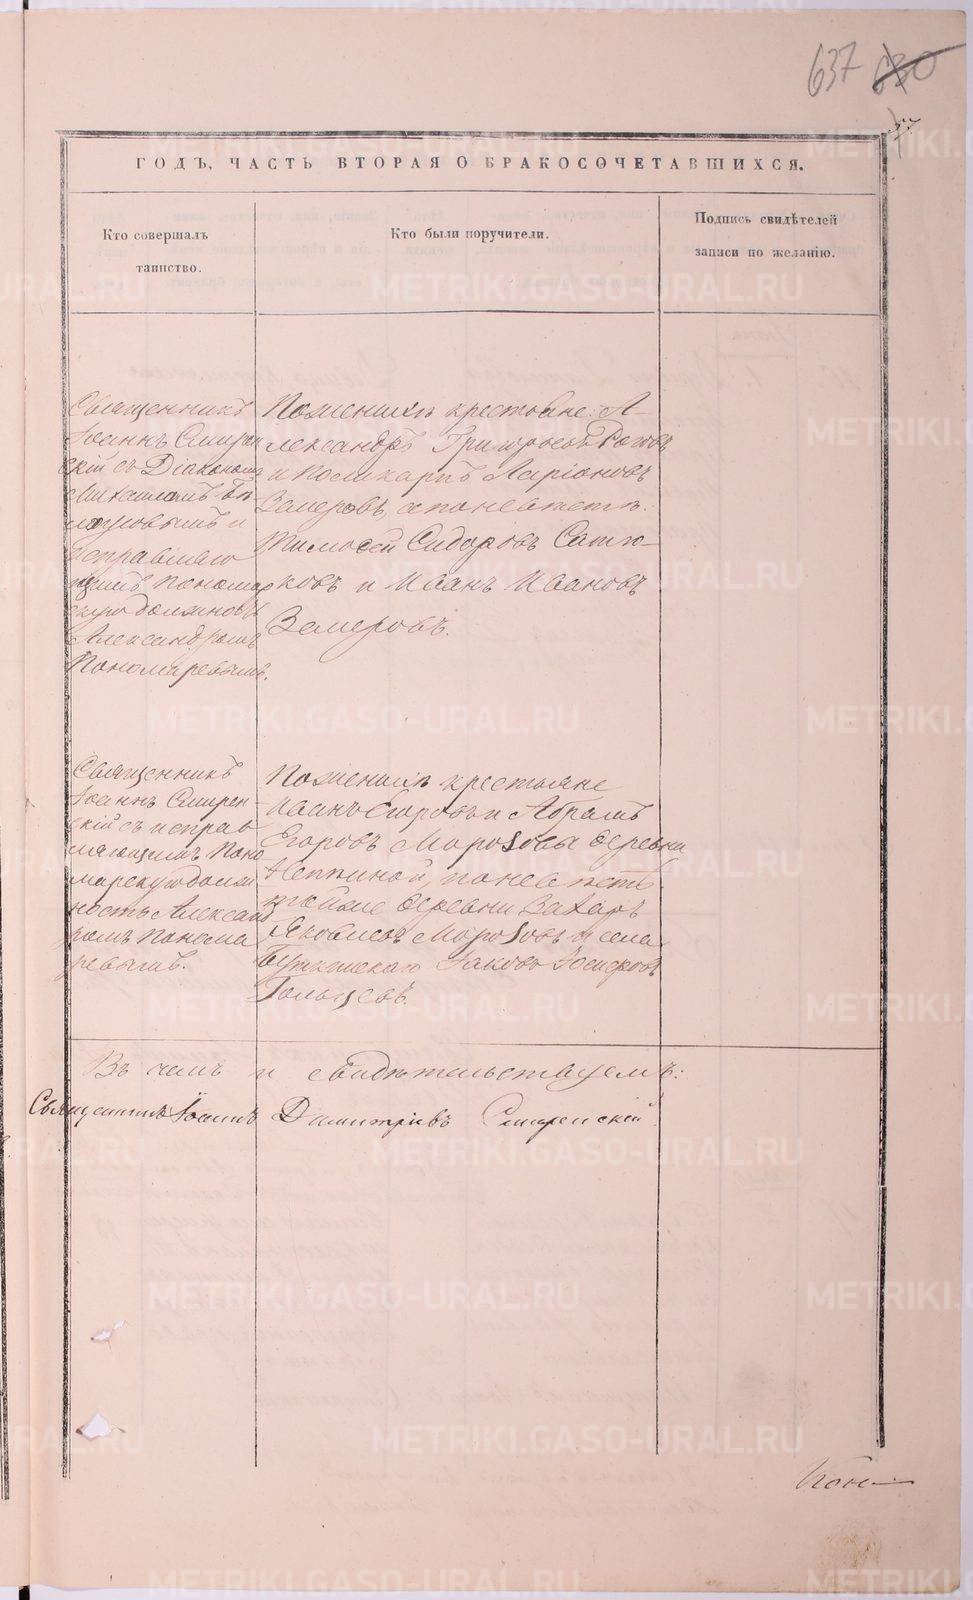 637 630
57.
ГОДЪ, ЧАСТЬ ВТОРАЯ О БРАКОСОЧЕТАВШИХСЯ.
Кто совершалъ
таинство.
Кто были поручители.
Подпись свидѣтелей
записи по желанію.
Священникъ
Іоаннъ Смирен
скій съ Діакономъ
Михаиломъ
и
исправляю
щимъ Пономар
скую должность
Александромъ
Пономаревымъ.
По женихѣ крестьяне: А-
лександръ Григорьевъ
и Поликарпъ Ларіоновъ
Замеровъ, а по невѣстѣ:
Тимофей Сидоровъ Сатю-
ковъ и Иванъ Ивановъ
Замеровъ.
Священникъ
Іоаннъ Смирен-
скій съ исправ
ляющимъ Поно
марскую долж
ность Алексан
ромъ Понома
ревымъ.
По женихѣ крестьяне
Иванъ Егоровъ и Абрамъ
Егоровъ Морозовы деревни
по невѣстѣ
тойже деревни Захаръ
Яковлевъ Морозовъ и села
Іаковъ
Въ чемъ и свидѣтельствуемъ:
Священникъ Іоаннъ Димитріевъ Смиренскій
METRIKI.GASO-URAL.RU